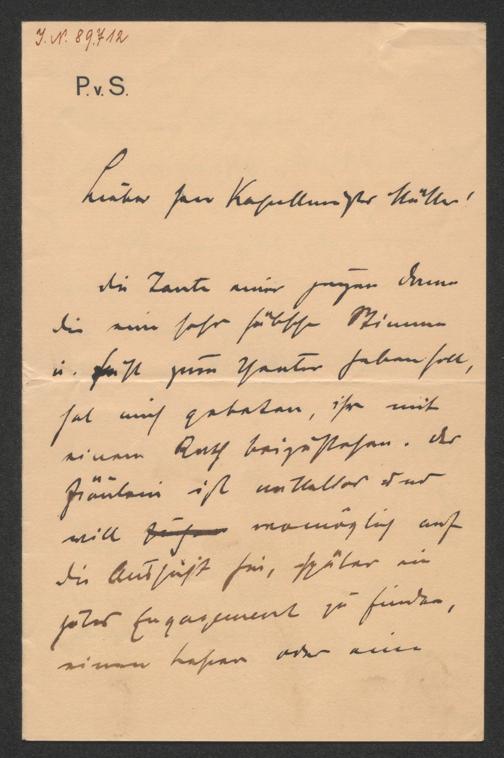 I.N. 89.712
P.v.S.
Lieber Herr Kapellmeister Müller!
die Tante einer jungen Dame
die eine sehr hübsche Stimme
u. Lust zum Theater haben soll,
hat mich gebeten, ihr mit
einem Rath beizustehen. Das
Fräulein ist mittellos und
will womöglich auf
die Aussicht hin, später ein
gutes Engagement zu finden,
einen Lehrer oder eine